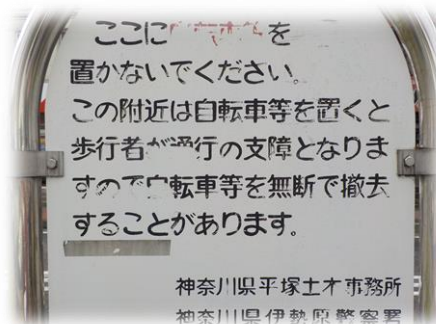 ここに を
置かないでください。
この附近は自転車等を置くと
歩行者が通行の支障となりま
すので自転車等を無断で撤去
することがあります。
神奈川県平塚土木事務所
神奈川県伊勢原警察署